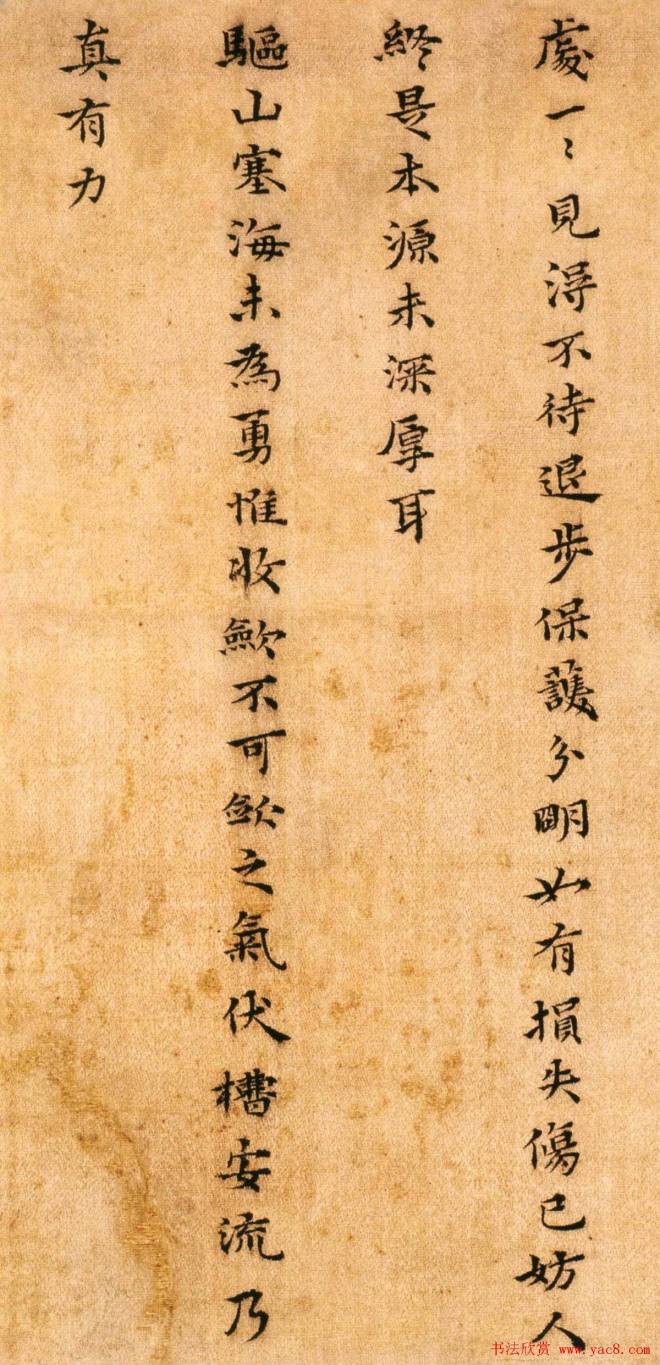 處一〻見得不待退步保護分明如有損失傷已妨人
終是本源未深厚耳
驅山塞海未為勇惟收歛不可歛之氣伏槽安流乃
真有力
书法欣赏 www.yac8.com